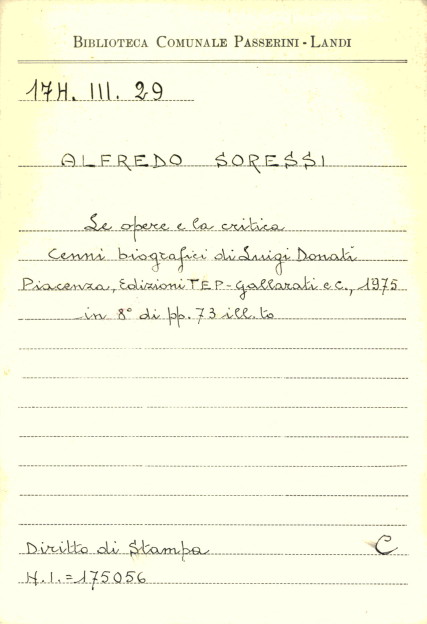 BIBLIOTECA COMUNALE PASSERINI-LANDI
17H. III. 29
ALFREDO SORESSI
Le opere e la critica
Cenni biografici di Luigi Donati
Piacenza, Edizioni TEP-Gallarati e C., 1975
in 8° di pp. 73 ill.to
Diritto di Stampa C
N.I.=175056